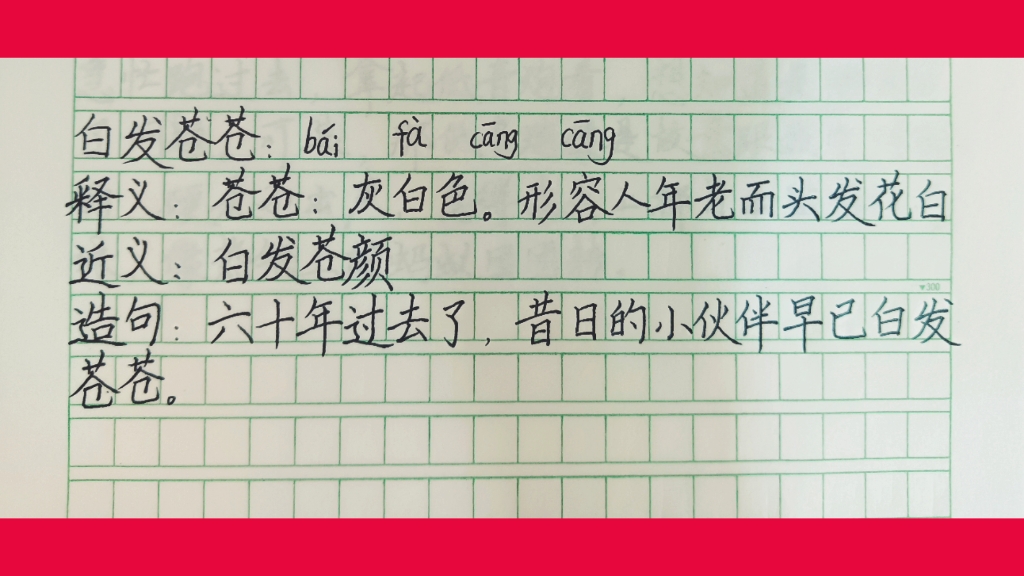 白发苍苍：bái fà cāng cāng
释义：苍苍：灰白色。形容人年老而头发花白
近义：白发苍颜
造句：六十年过去了，昔日的小伙伴早已白发
苍苍。